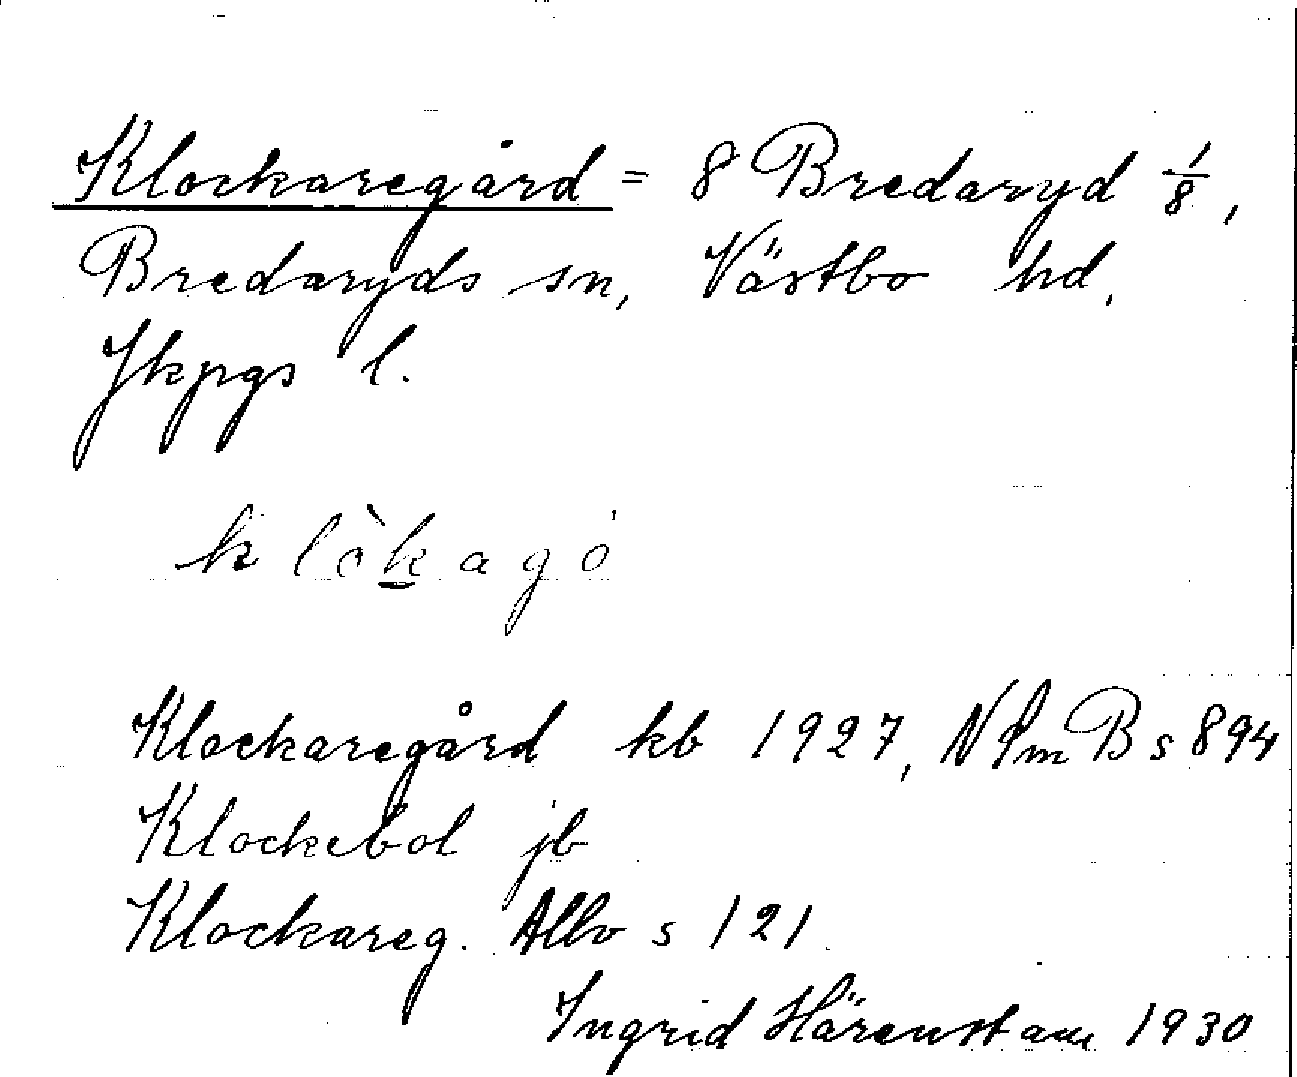 Klockaregård = 8 Bredaryd 1/8,
Bredaryds sn, Västbo hd,
Jkpgs l.
klòkagó
Klockaregård kb 1927, N Sm B s 894
Klockebol jb
Klockareg. Allv s 121
Ingrid Härenstam 1930